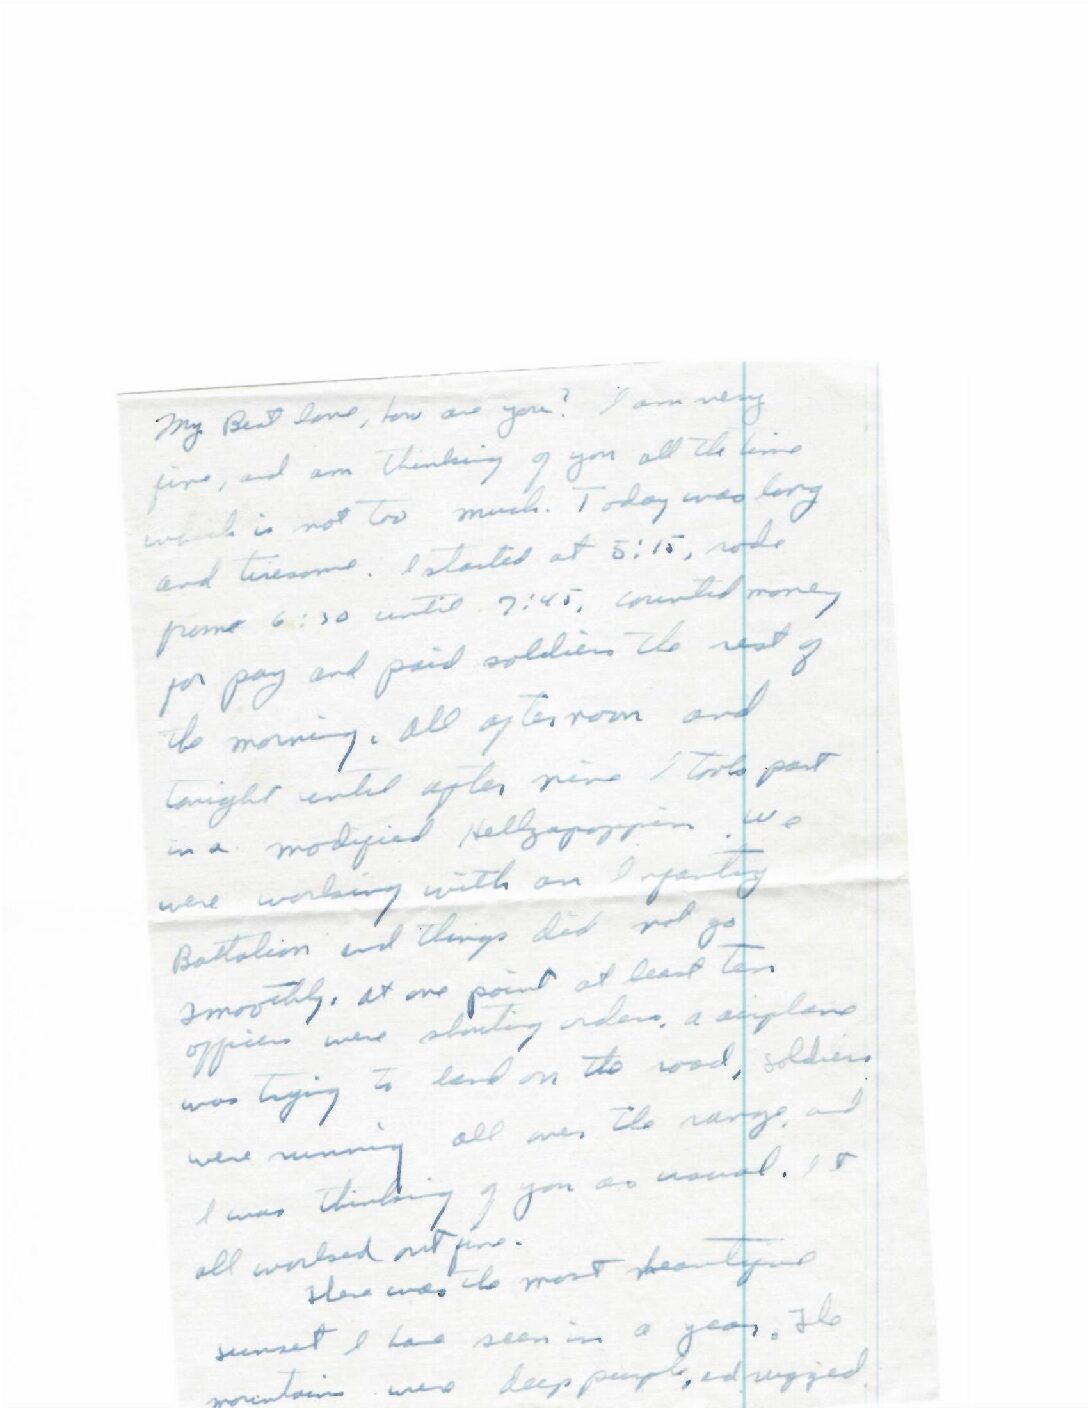 My Best love, how are you? I am very
fine, and am thinking of you all the time
which is not too much. Today was long
and tiresome. I started at 5:15, rode
from 6:30 until 7:45, counted money
for pay and paid soldiers the rest of
the morning. All afternoon and
tonight until after nine I took part
in a modified Hellzapoppin. We
were working with an Infantry
Battalion and things did not go
smoothly. At one point at least ten
officers were shouting orders, a airplane
was trying to land on the road, soldiers
were running all over the range, and
I was thinking of you as usual. It
all worked out fine.
Here was the most beautiful
sunset I have seen in a year. The
mountains were deep purple, and rugged